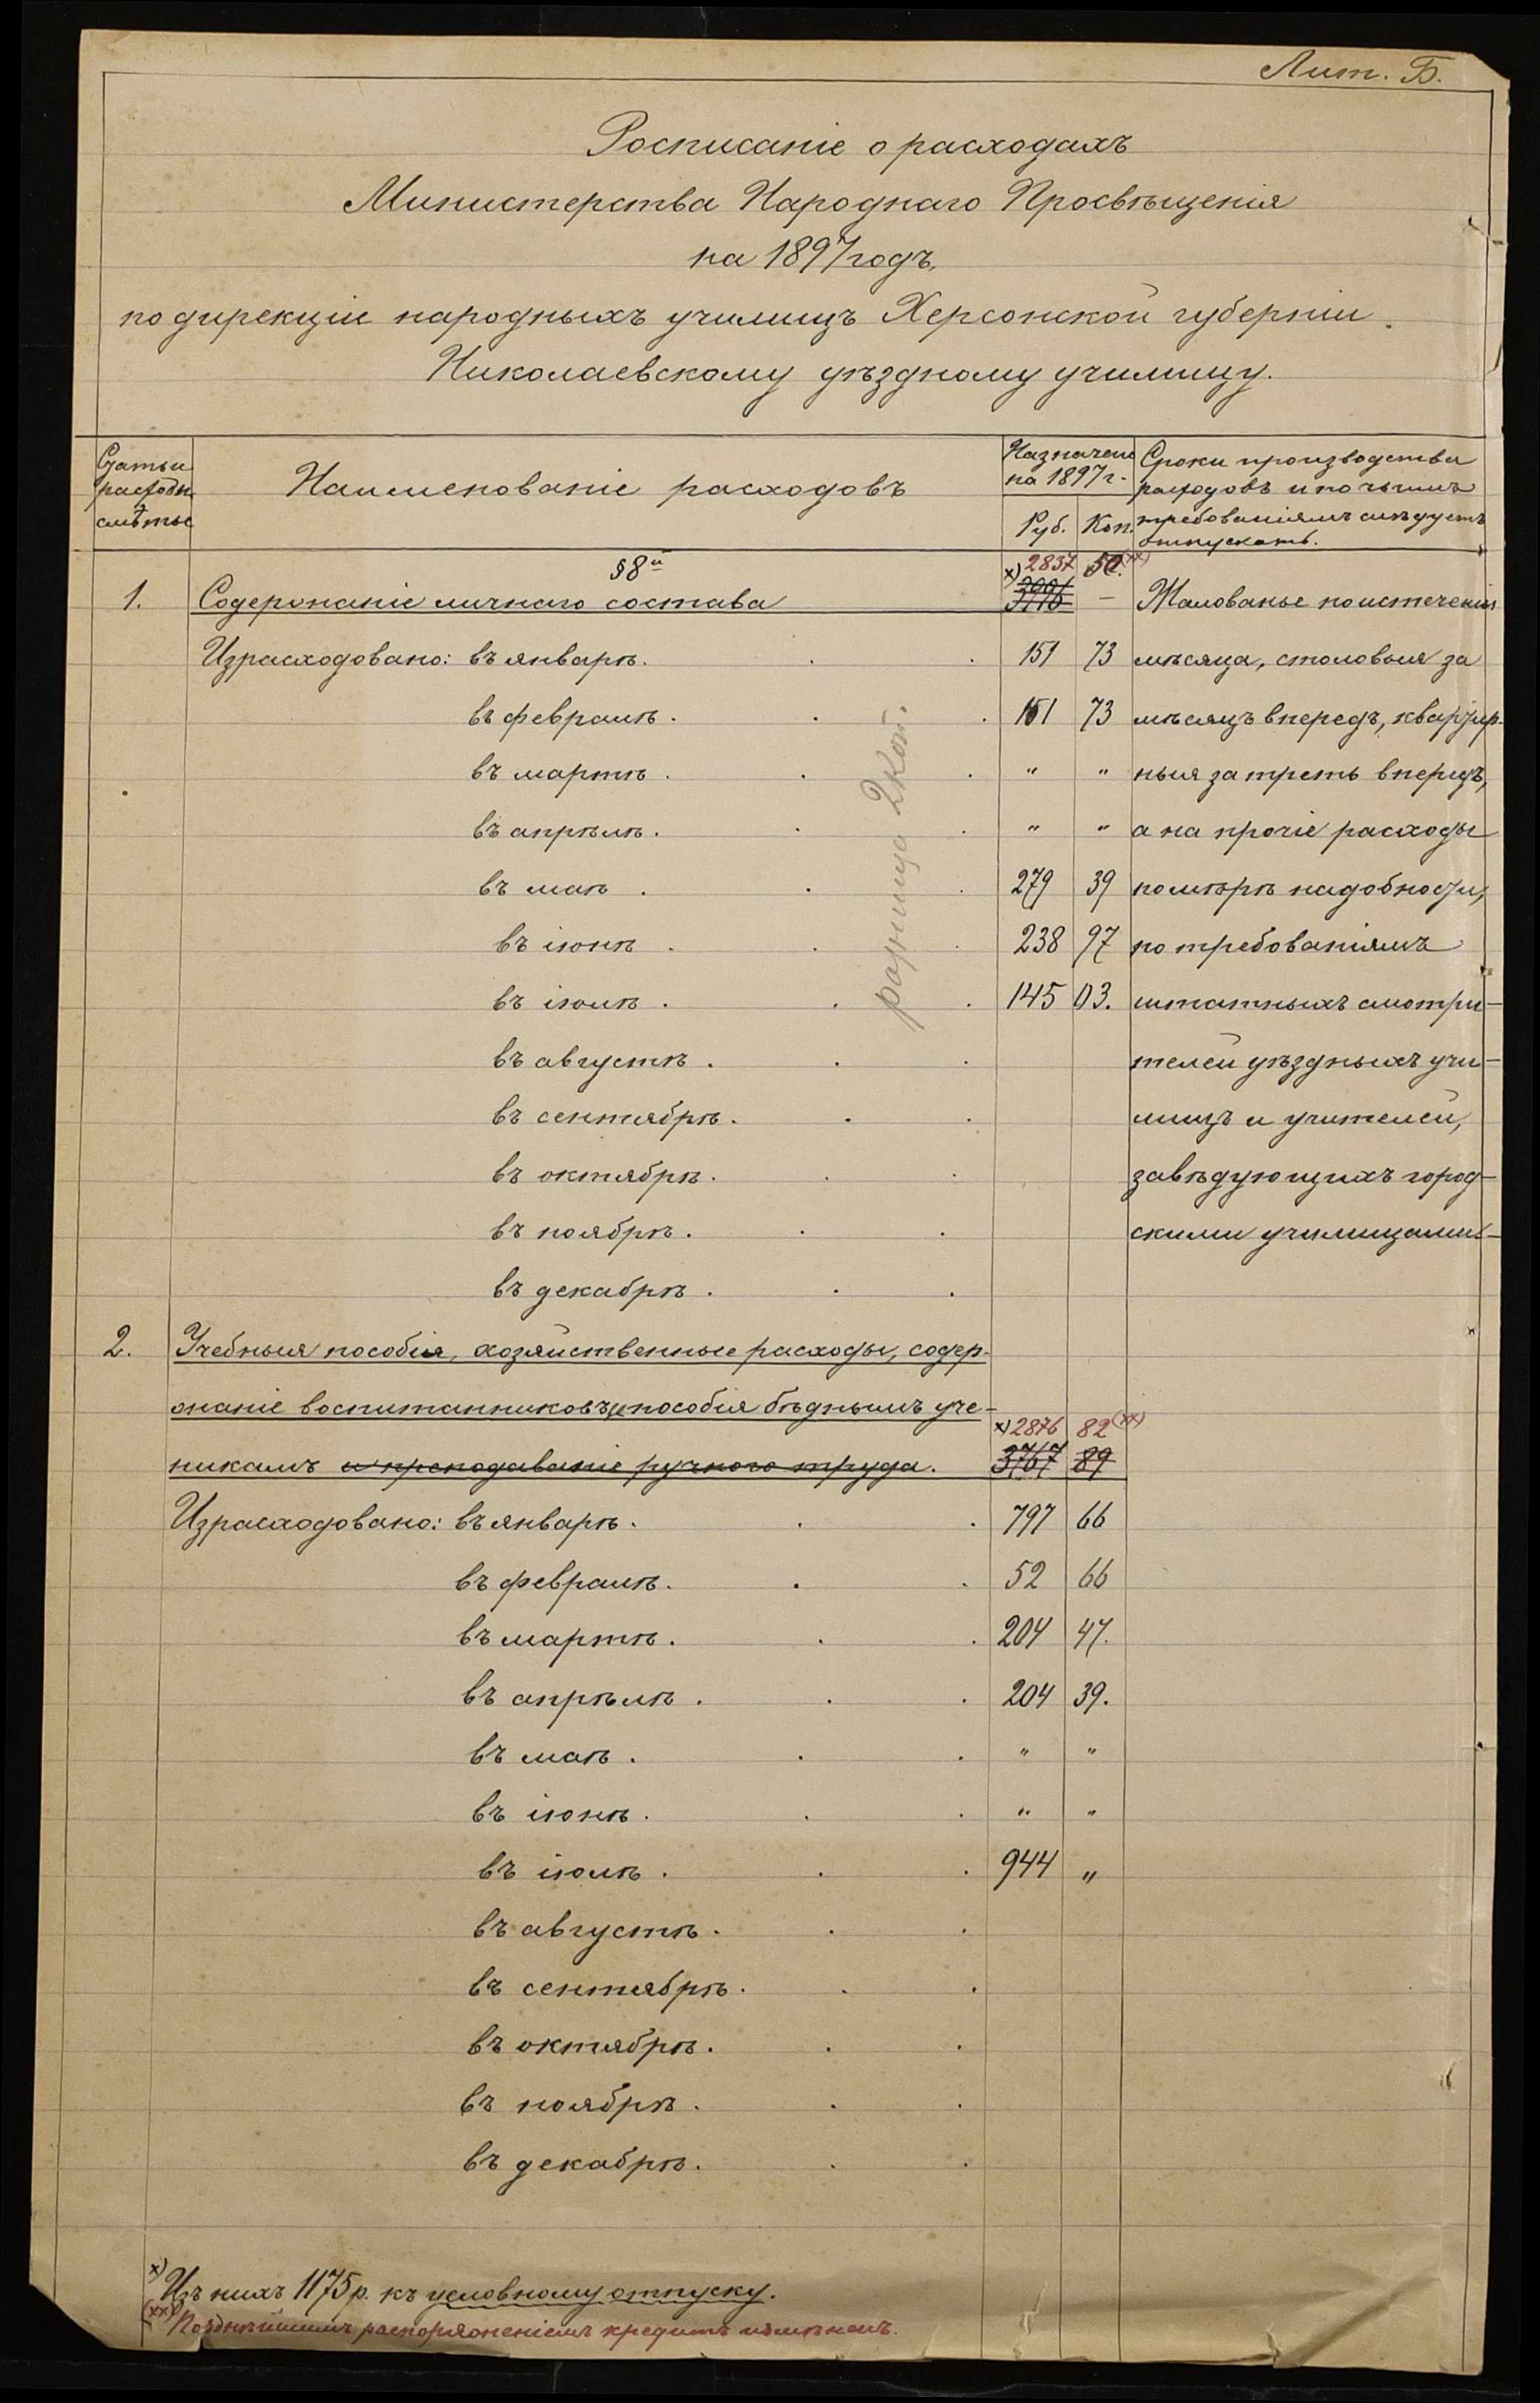 Лит. Б.
Росписаніе о расходахъ
Министерства Народнаго Просвѣщенія
на 1897 годъ,
по дирекціи народныхъ училищъ Херсонской губерніи.
Николаевскому уѣздному училищу.
Статьи расходн. смѣты
Наименованіе расходовъ
Назначено на 1897 г.
Руб. Коп.
Сроки производства
расходовъ и по чьимъ
требованіямъ слѣдуетъ
отпускать.
§8й
x) 2837 50 (xx)
1. Содержаніе личнаго состава — Жалованье по истеченіи
Израсходовано: въ январѣ. 151 73 мѣсяца, столовыя за
въ февралѣ. 151 73 мѣсяцъ впередъ, квартир-
въ мартѣ. " " ныя за треть впередъ,
въ апрѣлѣ. " " а на прочіе расходы
въ маѣ. 279 39 по мѣрѣ надобности,
въ іюнѣ. 238 97 по требованіямъ
въ іюлѣ. 145 03. штатныхъ смотри-
въ августѣ. телей уѣздныхъ учи-
въ сентябрѣ. лищъ и учителей,
въ октябрѣ. завѣдующихъ город-
въ ноябрѣ. скими училищами
въ декабрѣ.
разница 2 коп.
2. Учебныя пособія, хозяйственные расходы, содер-
жаніе воспитанниковъ и пособія бѣднымъ уче-
x) 2876 82 (xx)
никамъ и преподаваніе ручного труда. 3767 89
Израсходовано: въ январѣ. 797 66
въ февралѣ. 52 66
въ мартѣ. 204 47.
въ апрѣлѣ. 204 39.
въ маѣ. " "
въ іюнѣ. " "
въ іюлѣ. 944 "
въ августѣ.
въ сентябрѣ.
въ октябрѣ.
въ ноябрѣ.
въ декабрѣ.
x) Изъ нихъ 1175 р. къ условному отпуску.
(xx) Позднѣйшимъ распоряженіемъ кредитъ измѣненъ.